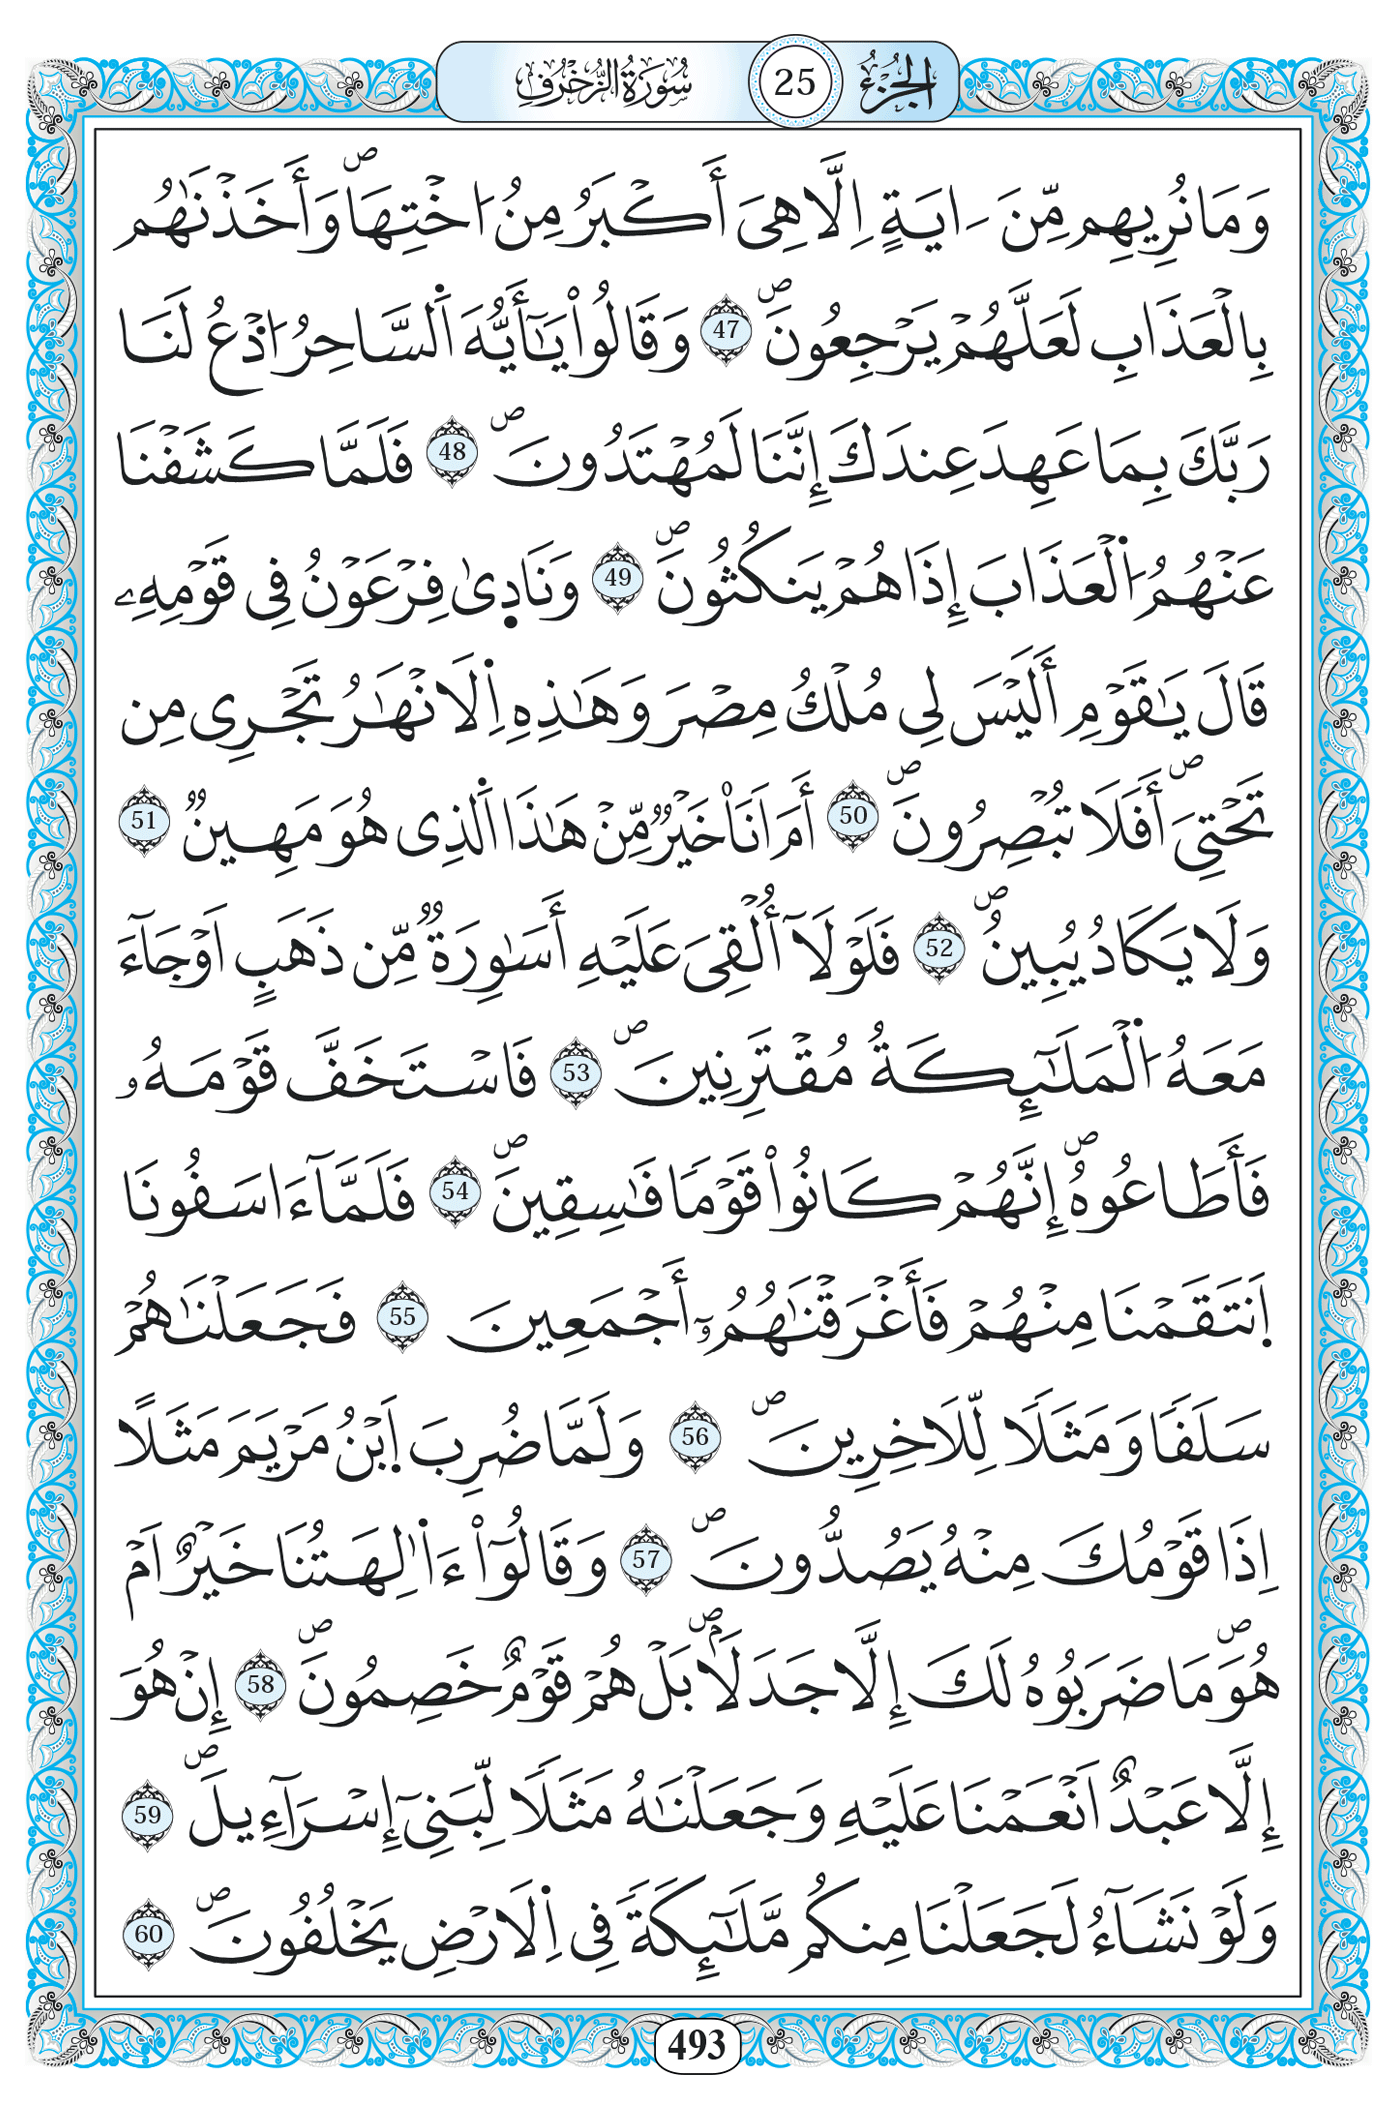 الجزء 25 سورة الزخرف
وَمَا نُرِيهِم مِّنَ ـ ايَةٍ اِلَّا هِىَ أَكْبَرُ مِنُ اخْتِهَاۖ وَأَخَذْنَٰهُم
بِالْعَذَابِ لَعَلَّهُمْ يَرْجِعُونَۖ 47 وَقَالُواْ يَٰٓأَيُّهَ اَلسَّاحِرُ اَدْعُ لَنَا
رَبَّكَ بِمَا عَهِدَ عِندَكَ إِنَّنَا لَمُهْتَدُونَۖ 48 فَلَمَّا كَشَفْنَا
عَنْهُمُ اُلْعَذَابَ إِذَا هُمْ يَنكُثُونَۖ 49 وَنَادٜىٰ فِرْعَوْنُ فِى قَوْمِهِۦ
قَالَ يَٰقَوْمِ أَلَيْسَ لِى مُلْكُ مِصْرَ وَهَٰذِهِ اِلَانْهَٰرُ تَجْرِى مِن
تَحْتِىَۖ أَفَلَا تُبْصِرُونَۖ 50 أَمَ اَنَا۠ خَيْرٌ مِّنْ هَٰذَا اَلَّذِى هُوَ مَهِينٌ 51
وَلَا يَكَادُ يُبِينُۖ 52 فَلَوْلَآ أُلْقِىَ عَلَيْهِ أَسَٰوِرَةٌ مِّن ذَهَبٍ اَوْ جَآءَ
مَعَهُ اُلْمَلَٰٓئِكَةُ مُقْتَرِنِينَۖ 53 فَاسْتَخَفَّ قَوْمَهُۥ
فَأَطَاعُوهُۖ إِنَّهُمْ كَانُواْ قَوْمًا فَٰسِقِينَۖ 54 فَلَمَّآ ءَاسَفُونَا
اَنتَقَمْنَا مِنْهُمْ فَأَغْرَقْنَٰهُمُۥٓ أَجْمَعِينَ 55 فَجَعَلْنَٰهُمْ
سَلَفًا وَمَثَلًا لِّلَاخِرِينَۖ 56 وَلَمَّا ضُرِبَ اَبْنُ مَرْيَمَ مَثَلًا
اِذَا قَوْمُكَ مِنْهُ يَصُدُّونَۖ 57 وَقَالُوٓاْ ءَاٰ۬لِهَتُنَا خَيْرٌ اَمْ
هُوَۖ مَا ضَرَبُوهُ لَكَ إِلَّا جَدَلَۢاۖ بَلْ هُمْ قَوْمٌ خَصِمُونَۖ 58 إِنْ هُوَ
إِلَّا عَبْدٌ اَنْعَمْنَا عَلَيْهِ وَجَعَلْنَٰهُ مَثَلًا لِّبَنِىٓ إِسْرَآءِيلَۖ 59
وَلَوْ نَشَآءُ لَجَعَلْنَا مِنكُم مَّلَٰٓئِكَةً فِى اِلَارْضِ يَخْلُفُونَۖ 60
493